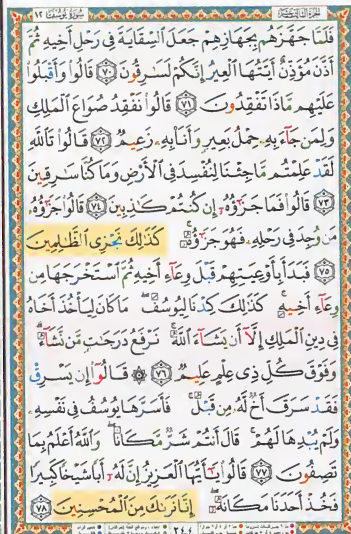 سُورَةُ يُوسُفَ ١٢
الجزء الثالث عشر
فَلَمَّا جَهَّزَهُم بِجَهَازِهِمْ جَعَلَ ٱلسِّقَايَةَ فِى رَحْلِ أَخِيهِ ثُمَّ
أَذَّنَ مُؤَذِّنٌ أَيَّتُهَا ٱلْعِيرُ إِنَّكُمْ لَسَٰرِقُونَ ٧٠ قَالُوا۟ وَأَقْبَلُوا۟
عَلَيْهِم مَّاذَا تَفْقِدُونَ ٧١ قَالُوا۟ نَفْقِدُ صُوَاعَ ٱلْمَلِكِ
وَلِمَن جَآءَ بِهِۦ حِمْلُ بَعِيرٍ وَأَنَا۠ بِهِۦ زَعِيمٌ ٧٢ قَالُوا۟ تَٱللَّهِ
لَقَدْ عَلِمْتُم مَّا جِئْنَا لِنُفْسِدَ فِى ٱلْأَرْضِ وَمَا كُنَّا سَٰرِقِينَ
٧٣ قَالُوا۟ فَمَا جَزَٰٓؤُهُۥٓ إِن كُنتُمْ كَٰذِبِينَ ٧٤ قَالُوا۟ جَزَٰٓؤُهُۥ
مَن وُجِدَ فِى رَحْلِهِۦ فَهُوَ جَزَٰٓؤُهُۥ كَذَٰلِكَ نَجْزِى ٱلظَّٰلِمِينَ
٧٥ فَبَدَأَ بِأَوْعِيَتِهِمْ قَبْلَ وِعَآءِ أَخِيهِ ثُمَّ ٱسْتَخْرَجَهَا مِن
وِعَآءِ أَخِيهِ كَذَٰلِكَ كِدْنَا لِيُوسُفَ مَا كَانَ لِيَأْخُذَ أَخَاهُ
فِى دِينِ ٱلْمَلِكِ إِلَّآ أَن يَشَآءَ ٱللَّهُ نَرْفَعُ دَرَجَٰتٍ مَّن نَّشَآءُ
وَفَوْقَ كُلِّ ذِى عِلْمٍ عَلِيمٌ ٧٦ ۞ قَالُوٓا۟ إِن يَسْرِقْ
فَقَدْ سَرَقَ أَخٌ لَّهُۥ مِن قَبْلُ فَأَسَرَّهَا يُوسُفُ فِى نَفْسِهِۦ
وَلَمْ يُبْدِهَا لَهُمْ قَالَ أَنتُمْ شَرٌّ مَّكَانًا وَٱللَّهُ أَعْلَمُ بِمَا
تَصِفُونَ ٧٧ قَالُوا۟ يَٰٓأَيُّهَا ٱلْعَزِيزُ إِنَّ لَهُۥٓ أَبًا شَيْخًا كَبِيرًا
فَخُذْ أَحَدَنَا مَكَانَهُۥٓ إِنَّا نَرَىٰكَ مِنَ ٱلْمُحْسِنِينَ ٧٨
٢٤٤